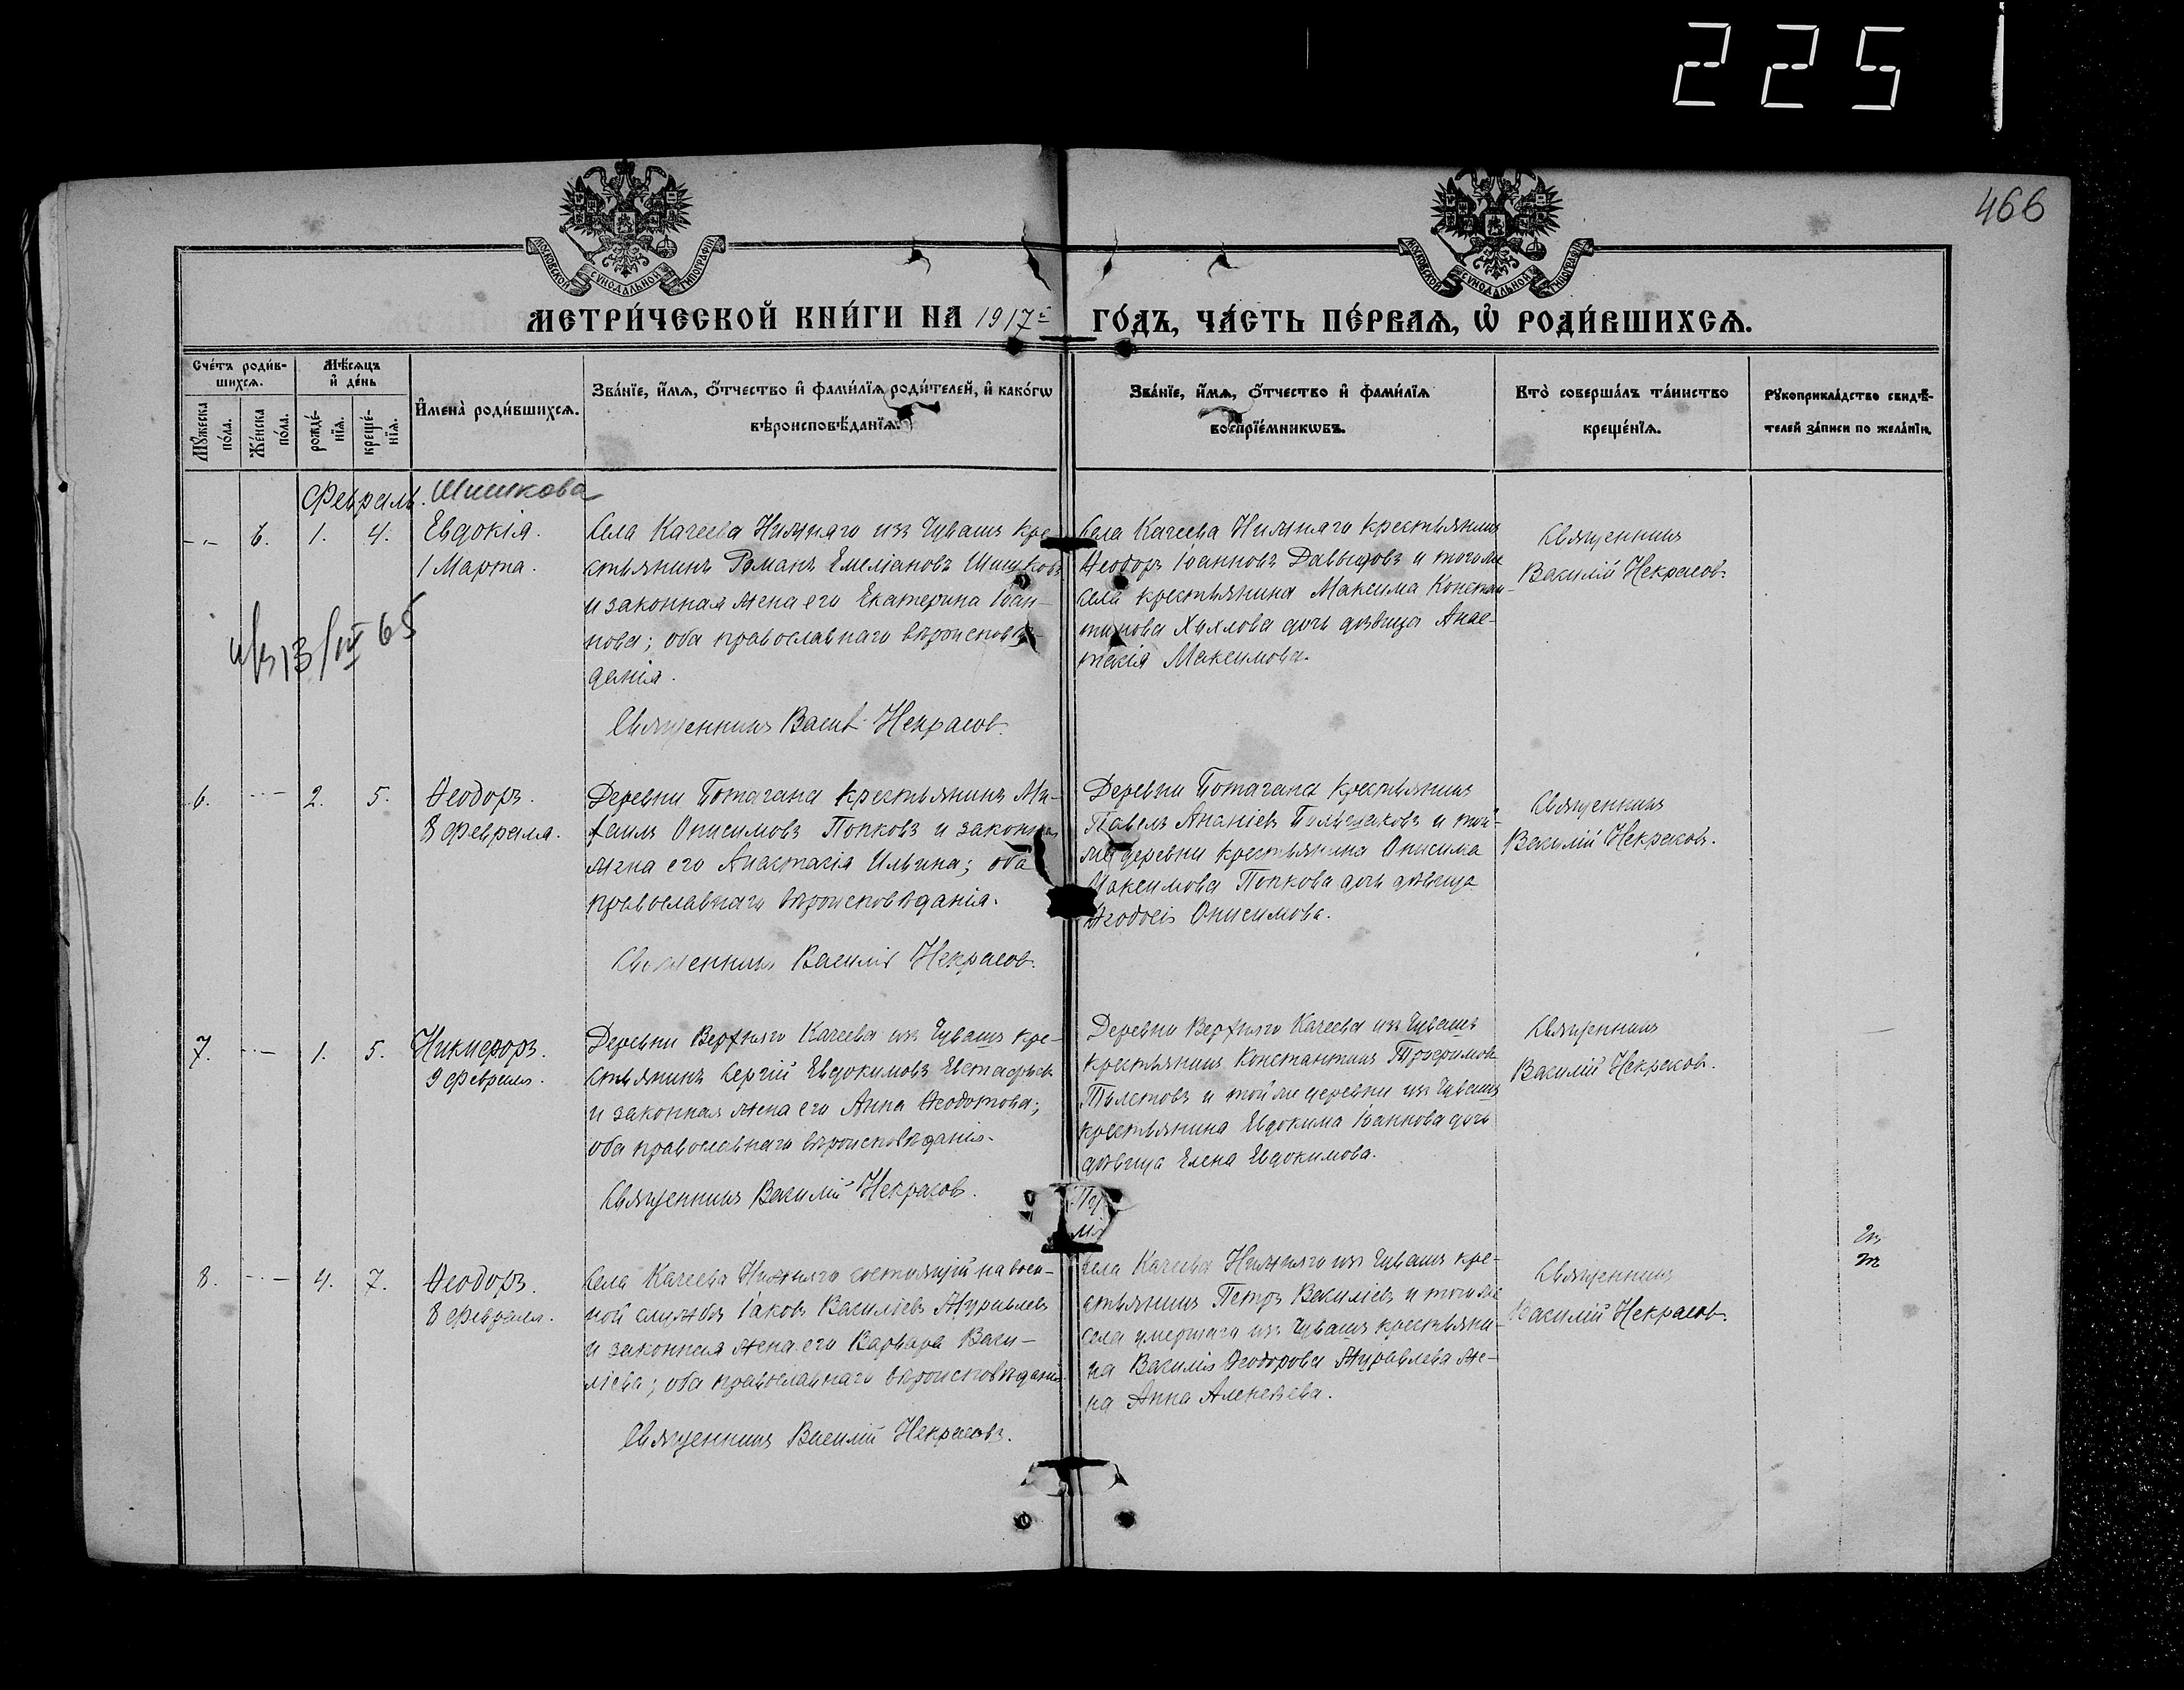 225
466
МОСКОВСКОЙ СУНОДАЛЬНОЙ ТИПОГРАФІИ
МОСКОВСКОЙ СУНОДАЛЬНОЙ ТИПОГРАФІИ
МЕТРИ́ЧЕСКОЙ КНИ́ГИ НА 1917й ГО́ДЪ, ЧА́СТЬ ПЕ́РВАѦ, Ѡ҆ РОДИ́ВШИХСѦ.
Сче́тъ роди́в-
шихсѧ.
Мꙋ́жеска
по́ла.
Же́нска
по́ла.
Мѣ́сѧцъ
и҆ де́нь
рожде́-
нїѧ.
креще́-
нїѧ.
И҆мена̀ роди́вшихсѧ.
Зва́нїе, и҆́мѧ, ѻ҆́тчество и҆ фами́лїѧ роди́телей, и҆ како́гѡ
вѣроисповѣ́данїѧ.
Зва́нїе, и҆́мѧ, ѻ҆́тчество и҆ фами́лїѧ
воспрїе́мникѡвъ.
Кто̀ соверша́лъ та́инство
креще́нїѧ.
Рꙋкоприкла́дство свидѣ́-
телей за́писи по жела́нїю.
Февраль. Шишкова
6. 1. 4. Евдокія.
1 Марта.
13/IV 65
Села Качеева Нижняго изъ Чувашъ кре-
стьянинъ Романъ Емеліановъ Шишковъ
и законная жена его Екатерина Іоан-
нова; оба православнаго вѣроисповѣ-
данія.
Священникъ Васил Некрасов.
Села Качеева Нижняго крестьянинъ
Ѳеодоръ Іоанновъ Давыдовъ и того же
села крестьянина Максима Констан-
тинова Хохлова дочь дѣвица Анас-
тасія Максимова.
Священникъ
Василій Некрасов.
6. 2. 5. Ѳеодоръ.
8 Февраля.
Деревни Потагана крестьянинъ Ми-
хаилъ Онисимовъ Попковъ и законная
жена его Анастасія Ильина; оба
православнаго вѣроисповѣданія.
Священникъ Василій Некрасов.
Деревни Потагана крестьянинъ
Павелъ Ананіевъ и той-
же деревни крестьянина Онисима
Максимова Попкова дочь дѣвица
Ѳеодосія Онисимова.
Священникъ
Василій Некрасов.
7. 1. 5. Никифоръ.
9 Февраля.
Деревни Верхняго Качеева изъ Чувашъ кре-
стьянинъ Сергій Евдокимовъ Евстафьев
и законная жена его Анна Ѳеодотова;
оба православнаго вѣроисповѣданія.
Священникъ Василій Некрасовъ.
Деревни Верхняго Качеева изъ Чувашъ
крестьянинъ Константинъ Трофимовъ
Толстовъ и той же деревни изъ Чувашъ
крестьянина Евдокима Іоаннова дочь
дѣвица Елена Евдокимова.
Священникъ
Василій Некрасов.
8. 4. 7. Ѳеодоръ.
8 Февраля.
Села Качеева Нижняго состоящій на воен-
ной службѣ Іаковъ Василіевъ Журавлевъ
и законная жена его Варвара Васи-
ліева; оба православнаго вѣроисповѣданія.
Священникъ Василій Некрасовъ.
Села Качеева Нижняго изъ Чувашъ кре-
стьянинъ Петръ Василіевъ и того же
села умершаго изъ Чувашъ крестьяни-
на Василія Ѳеодорова Журавлева же-
на Анна Алексѣева.
Священникъ
Василій Некрасов.